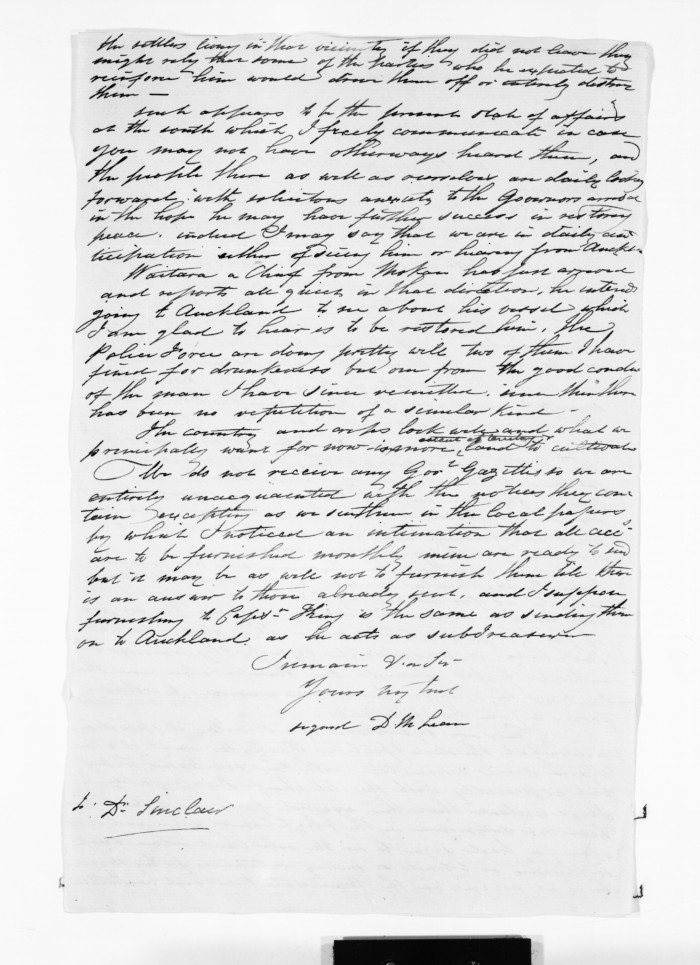 the settlers living in that vicinity if they did not leave they
might rely that some of the parties who he expected to
reinforce him would drive them off or entirely destroy
them —
such appears to be the present state of affairs
at the south which I freely communicate in case
you may not have otherways heard them, and
the people there as well as ourselves are daily looking
forward with solicitous anxiety to the Governors arrival
in the hope he may have further success in restoring
peace. indeed I may say that we are in daily an
ticipation either of seeing him or hearing from Auckd
Waitara a Chief from Mokau has just arrived
and reports all quiet in that direction, he intends
going to Auckland to see about his vessel which
I am glad to hear is to be restored him, The
Police Force are doing pretty well two of them I have
fined for drunkeness but one from the good conduct
of the man I have since remitted. since then there
has been no repetition of a similar kind —
The country and crops look well and what we
principally want for now is more extent of territory land to cultivate
We do not receive any Govt Gazettes so we are
entirely unacquainted with the notices they con
tain excepting as we see them in the local papers
by which I noticed an intimation that all accts
are to be furnished monthly mine are ready to send
but it may be as well not to furnish them till there
is an answer to those already sent, and I suppose
furnishing to Captn King is the same as sending them
on to Auckland. as he acts as subtreasurer
I remain Dr Sir
Yours very truly
signed D. McLean
to Dr Sinclair